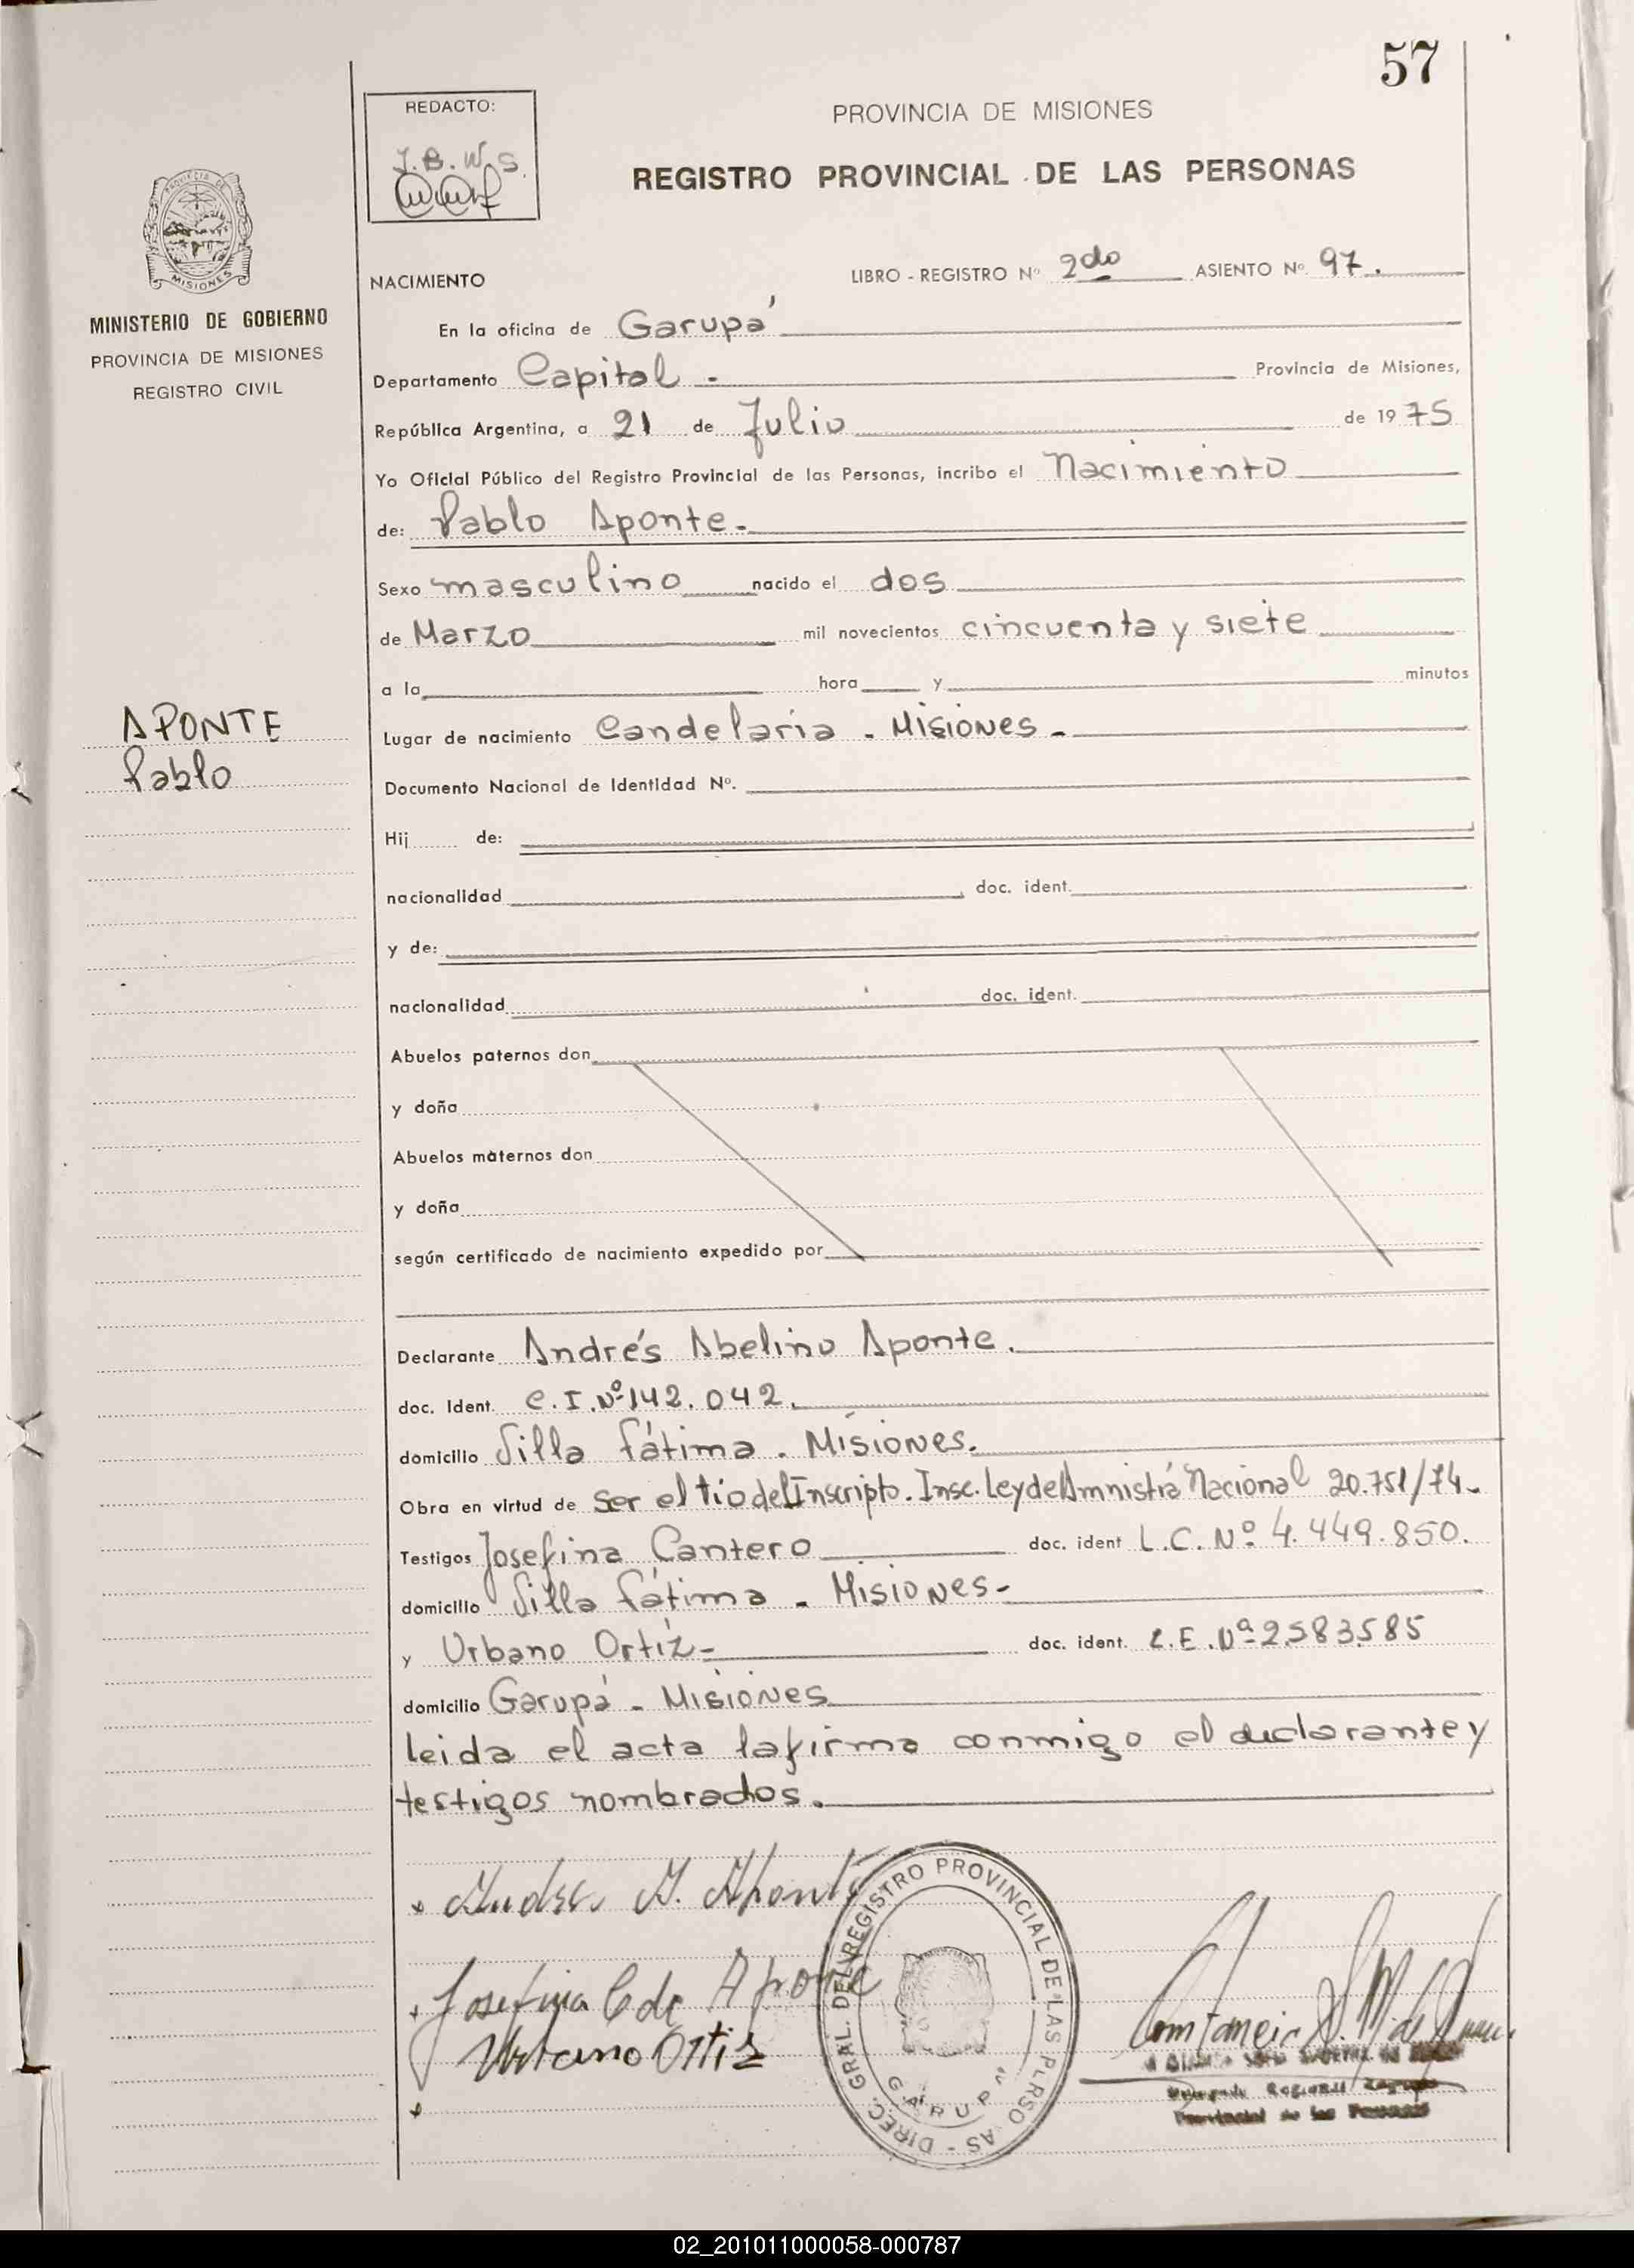 57
REDACTO:
J.B.W.S.
PROVINCIA DE MISIONES
REGISTRO PROVINCIAL DE LAS PERSONAS
PROVINCIA DE
MISIONES
MINISTERIO DE GOBIERNO
PROVINCIA DE MISIONES
REGISTRO CIVIL
NACIMIENTO LIBRO - REGISTRO Nº 2do ASIENTO Nº 97.
En la oficina de Garupá
Departamento Capital - Provincia de Misiones,
República Argentina, a 21 de Julio de 1975
Yo Oficial Público del Registro Provincial de las Personas, incribo el Nacimiento
de: Pablo Aponte.
Sexo masculino nacido el dos
de Marzo mil novecientos cincuenta y siete
a la hora y minutos
APONTE
Pablo
Lugar de nacimiento Candelaria - Misiones -
Documento Nacional de Identidad Nº.
Hij de:
nacionalidad doc. ident.
y de:
nacionalidad doc. ident.
Abuelos paternos don
y doña
Abuelos maternos don
y doña
según certificado de nacimiento expedido por
Declarante Andrés Abelino Aponte.
doc. Ident. C.I.Nº142.042.
domicilio Villa Fátima - Misiones.
Obra en virtud de ser el tio del Inscripto. Insc. Ley de Amnistía Nacional 20.751/74.
Testigos Josefina Cantero doc. ident L.C. Nº 4.449.850.
domicilio Villa Fátima - Misiones-
y Urbano Ortíz- doc. ident. L.E. Nº2583585
domicilio Garupá - Misiones
leida el acta la firma conmigo el declarante y
testigos nombrados.
Josefina C de Aponte
Urbano Ortiz
DIREC. GRAL. DEL REGISTRO PROVINCIAL DE LAS PERSO AS
GARUPA
Provincial de las Personas
02_201011000058-000787